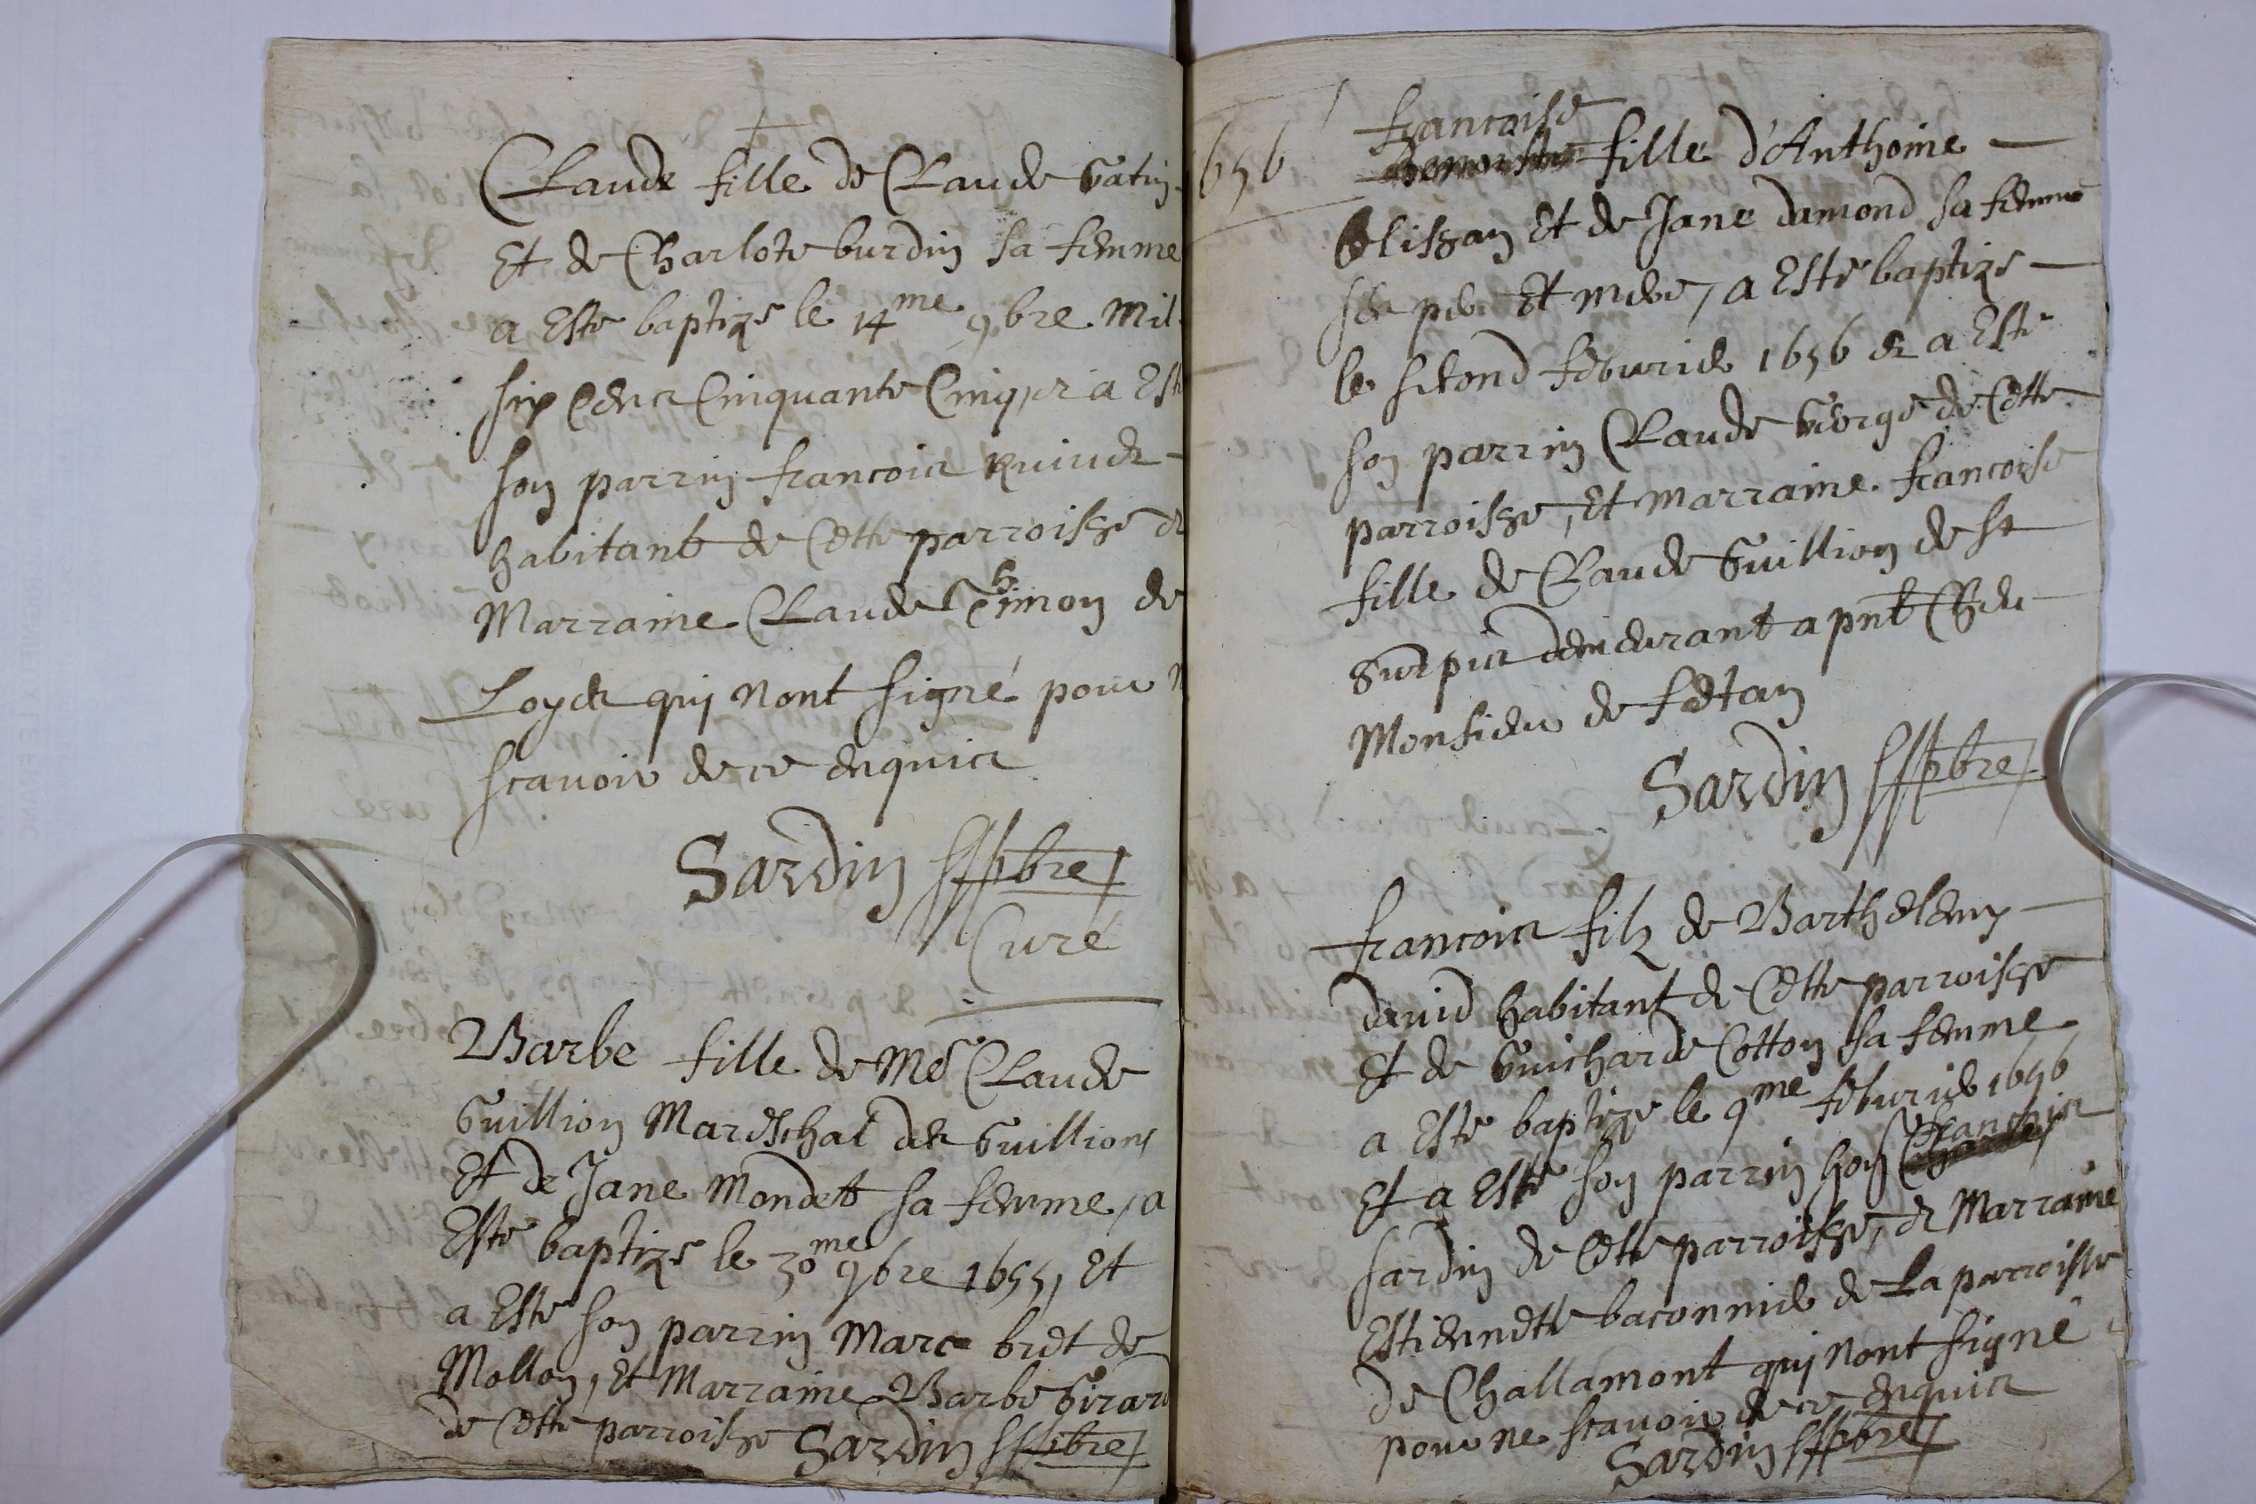 Claude fille de Claude Gatin
Et de Charlote burdin sa femme
a Este baptize le 14me 9bre mil
six cens Cinquante Cinq, et a Este
son parrin francois
habitant de Cette parroisse et
Marraine Claude Thimon de
Loyes quj nont signé pour n
scavoir de ce enquis
Sardin pbre
Curé
Barbe fille de Me Claude
Guillion Mareschal des Guillions
Et de Jane Mondett sa femme, a
Este baptize le 30me 9bre 1655, Et
a Este son parrin Marc bret de
Mollon, Et Marraine Barbe Girard
de Cette parroisse Sardin pbre
1656
francoise
fille d'Anthoine
blissan Et de Jane damond sa femme
ses per Et mere, a Este baptize
le second feburier 1656 et a Este
son parrin Claude George de Cette
parroisse, Et marraine francoise
fille de Claude Guillion de St
Surpis demeurant a pnt Cheu
Monsieur de fetan
Sardin pbre
francois filz de Barthelemy
david habitant de Cette parroisse
Et de Guicharde Cotton sa femme
a Este baptize le 9me feburier 1656
francois
Et a Este son parrin hon
sardin de Cette parroisse, et Marraine
Estiennette baconnier de La parroisse
de Challamont quj nont signé
pour ne scavoir de ce enquis
Sardin pbre